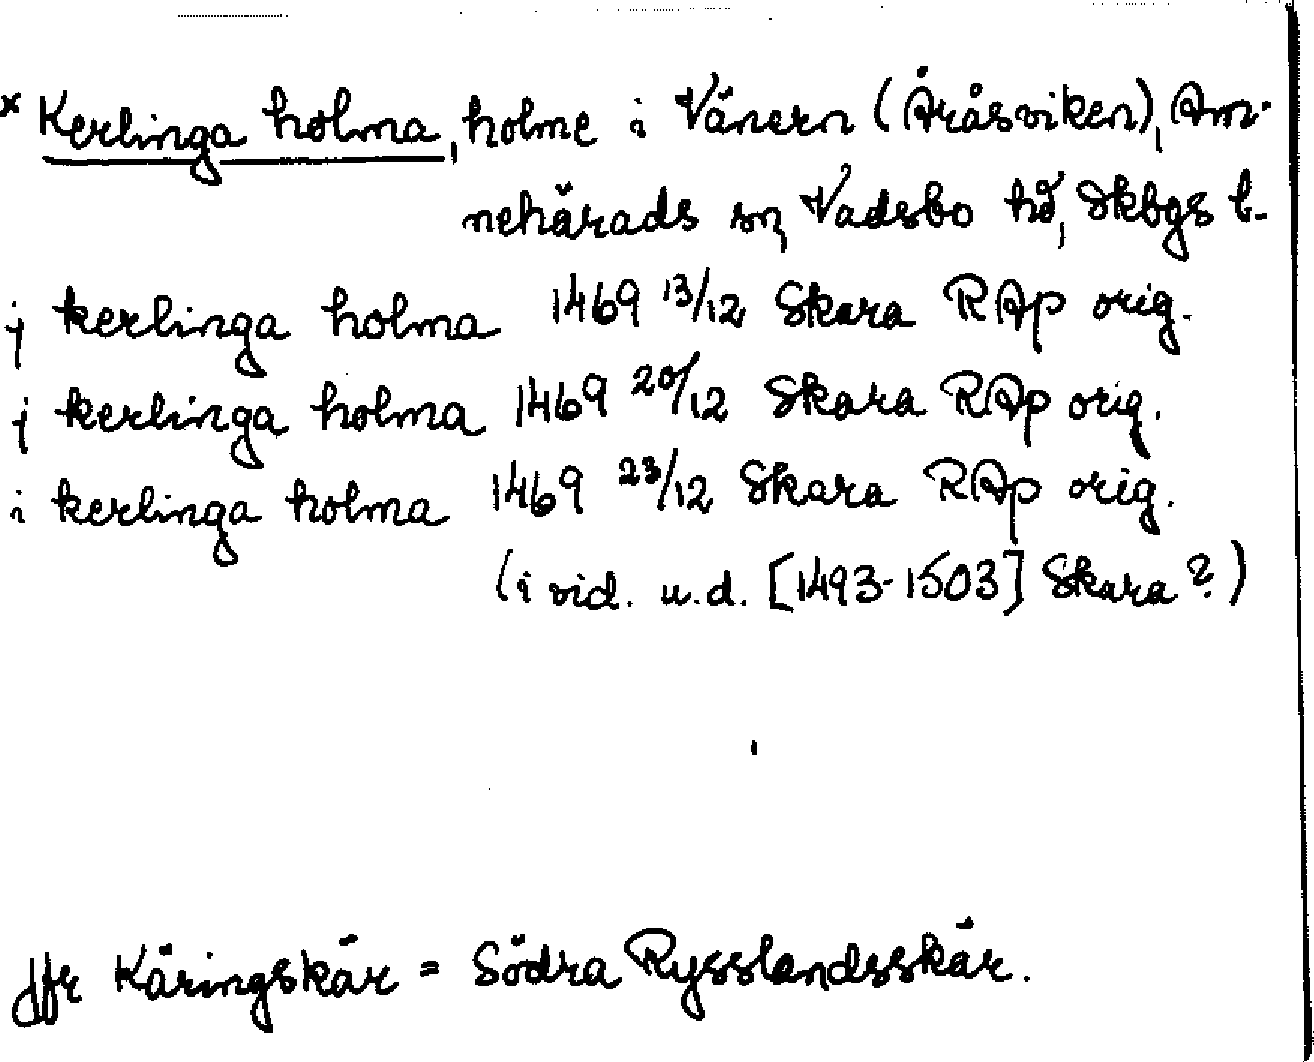 × Kerlinga holma, holme i Vänern (Åråsviken), Am-
nehärads sn, Vadsbo hd, Skbgs l.
j kerlinga holma 1469 13/12 Skara RAp orig.
j kerlinga holma 1469 20/12 Skara RAp orig.
i kerlinga holma 1469 23/12 Skara RAp orig.
(i vid. u.d. [1493-1503] Skara?)
Jfr Käringskär = Södra Rysslandsskär.